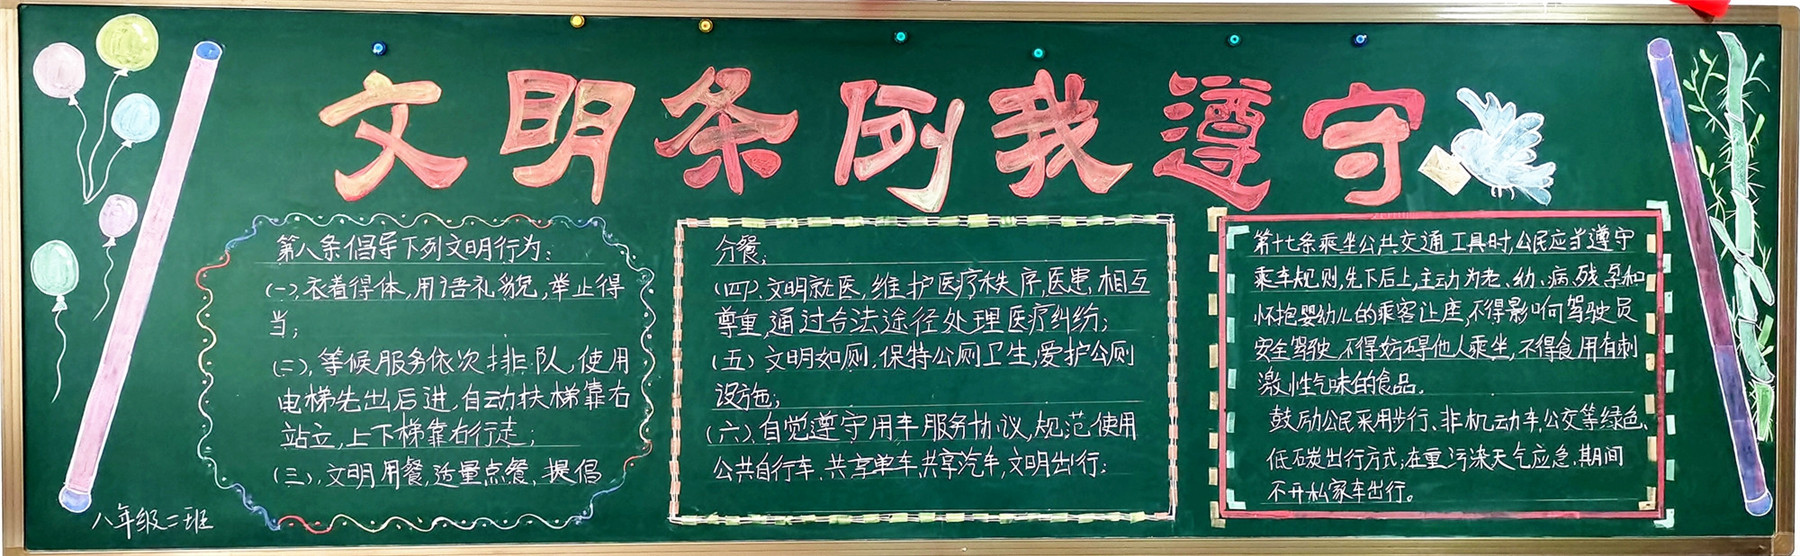 文明条例我遵守
第八条倡导下列文明行为:
(一)、衣着得体,用语礼貌,举止得
当;
(二),等候服务依次排队,使用
电梯先出后进,自动扶梯靠右
站立,上下梯靠右行走;
(三),文明用餐,适量点餐,提倡
分餐;
(四)、文明就医,维护医疗秩序,医患相互
尊重,通过合法途径处理医疗纠纷;
(五)文明如厕,保持公厕卫生,爱护公厕
设施;
(六)、自觉遵守用车服务协议,规范使用
公共自行车、共享单车,共享汽车,文明出行;
第十七条乘坐公共交通工具时,公民应当遵守
乘车规则,先下后上,主动为老、幼、病、残、孕和
怀抱婴幼儿的乘客让座,不得影响驾驶员
安全驾驶,不得妨碍他人乘坐,不得食用有刺
激性气味的食品。
鼓励公民采用步行、非机动车、公交等绿色、
低碳出行方式;在重污染天气应急期间
不开私家车出行。
八年级二班